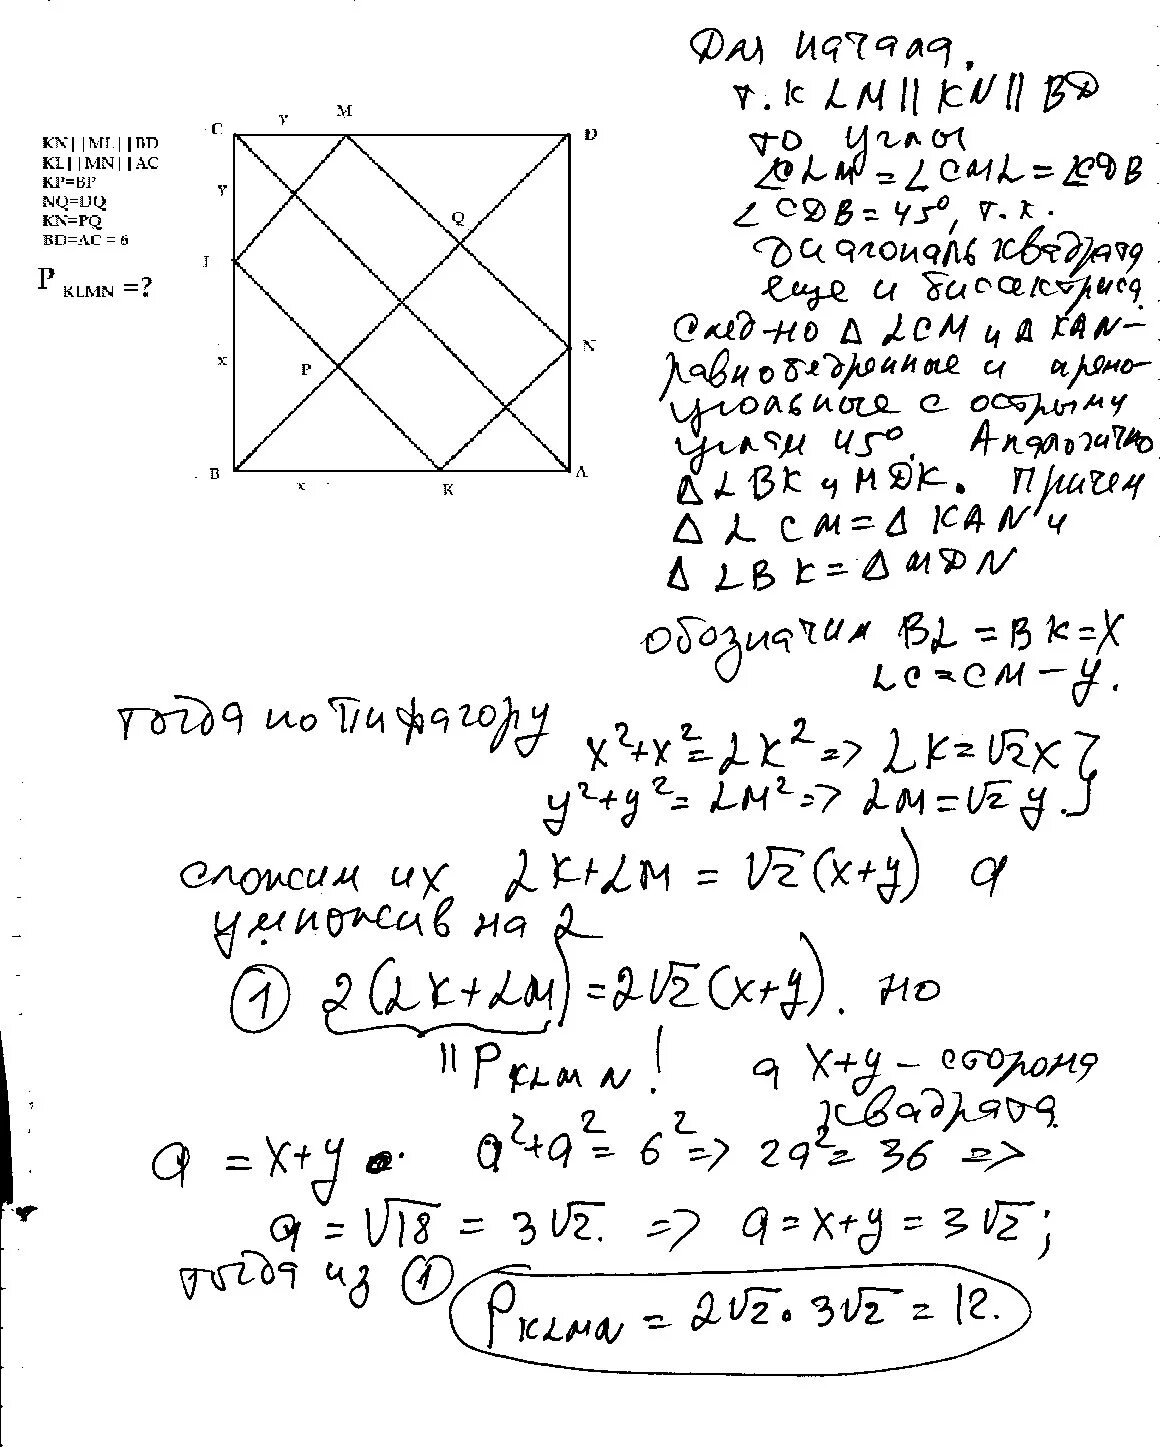 KN||ML||BD
KL||MN||AC
KP=BP
NQ=DQ
KN=PQ
BD=AC = 6
P KLMN =?
C
y
M
D
y
Q
L
N
x
P
B
x
K
A
Для начала,
т.к LM || KN || BD
то углы
∠CLM = ∠CML = ∠CDB
∠CDB = 45°, т.к.
диагональ квадрата
еще и биссектриса.
След-но Δ LCM и Δ KAN -
равнобедренные и прямо-
угольные с острыми
углами 45°. Аналогично
Δ LBK и MDK. Причем
Δ LCM = Δ KAN и
Δ LBK = Δ MDN
обозначим BL = BK = X
LC = CM - y.
тогда по Пифагору
x²+x² = LK² => LK = √2x }
y²+y² = LM² => LM = √2 y. }
сложим их LK+LM = √2(x+y) а
умножив на 2
① 2(LK+LM) = 2√2(x+y). но
|| P KLMN!
а x+y - сторона
квадрата
a = x+y. a²+a² = 6² => 2a² = 36 =>
a = √18 = 3√2. => a = x+y = 3√2;
тогда из ①
P KLMN = 2√2 · 3√2 = 12.